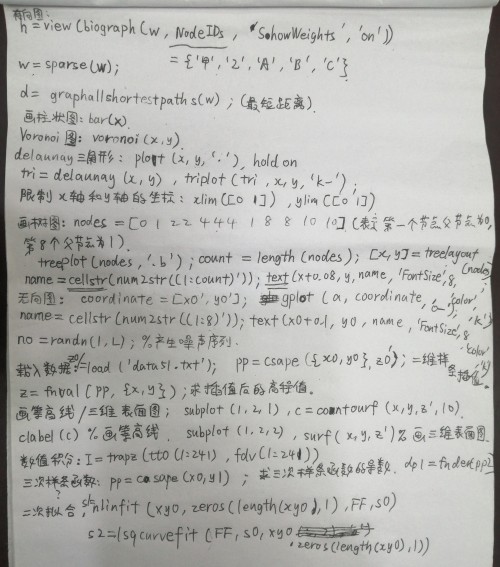 有向图:
h = view (biograph (w, NodeIDs, 'SohowWeights', 'on'))
= {'甲', '2', 'A', 'B', 'C'}
w = sparse(w);
d = graphallshortestpaths(w) ; (最短距离).
画柱状图: bar(x)
Voronoi 图: voronoi (x, y)
delaunay 三角形: plot (x, y, '.'), hold on
tri = delaunay (x, y) , triplot (tri , x, y, 'k-') ;
限制 x 轴和 y 轴的坐标: xlim ([0 1]) , ylim ([0 1])
画树图: nodes = [0 1 2 2 4 4 4 1 8 8 10 10] (表示第一个节点父节点为0,
第8个父节点为1).
treeplot (nodes, '.b') ; count = length (nodes) ; [x, y] = treelayout (nodes)
name = cellstr(num2str((1:count)')); text (x+0.08, y, name, 'FontSize', 8,
无向图: coordinate = [x0', y0']; gplot (a, coordinate, 'color', 'k')
name = cellstr (num2str ((1:8)')); text (x0+0.1, y0, name, 'FontSize', 8
'color'
no = randn (1, L) ; %产生噪声序列.
载入数据: z0 = load ('data51.txt') ; pp = csape ({x0, y0}, z0') ; 二维样条插值
z = fnval (pp, {x, y}) ; 求插值后的高程值.
画等高线/三维表面图: subplot (1, 2, 1) , c = contourf (x, y, z', 10).
clabel (c) % 画等高线. subplot (1, 2, 2) , surf (x, y, z') % 画三维表面图.
数值积分: I = trapz (tt0 (1:241) , fdv (1:241))
三次样条函数: pp = csape (x0, y1) ; 求三次样条函数的导数. dp1 = fnder(pp2)
二次拟合, s1 = nlinfit (xy0, zeros (length(xy0), 1) , FF, s0)
s2 = lsqcurvefit (FF, s0, xy0
, zeros (length(xy0), 1))